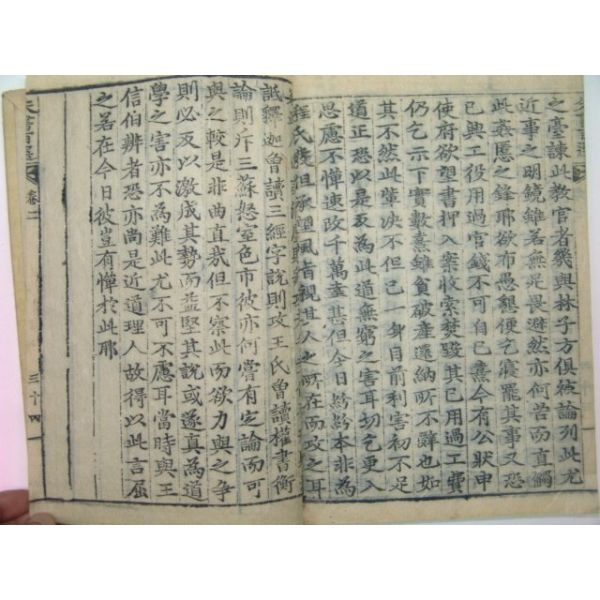 之臺諫此教官者幾與林子方俱被論列此尤
近事之明鏡雖若無足畏避然亦何當而直觸
此蠆慝之鋒耶欲布愚懇便乞寢罷其事又恐
已興工役用過官錢不可自已熹今有公狀申
使府欲望書押入案收索焚毀其已用過工費
仍乞示下實數熹雖貧破產還納所不辭也如
其不然此輩決不但已一身目前利害初不足
道正恐以是反為此道無窮之害耳切乞更入
思慮不憚速改千萬幸甚但今日紛紛本非為
程氏發但承望風旨視其人之所在而攻之耳
詆釋迦曾讀三經字說則攻王氏曾讀權書衡
論則斥三蘇怒室色市彼亦何嘗有定論而可
與之較是非曲直哉但不察此而欲力與之爭
則必反以激成其勢而益堅其說或遂真為道
學之害亦不為難此尤不可不應耳當時與王
信伯辨者恐亦尚是近道理人故得以此言屈
之若在今日彼豈有憚於此耶
朱書百選
卷二
三十四